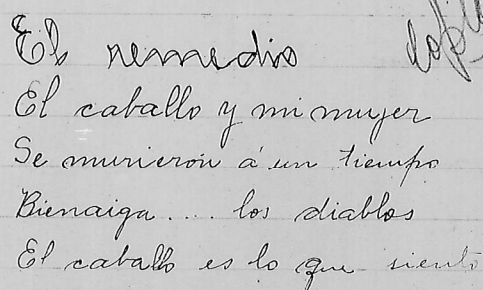 El remedio
El caballo y mi mujer
Se murieron á un tiempo
Bienaiga.... los diablos
El caballo es lo que siento